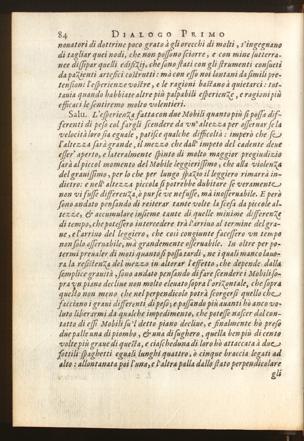 84 DIALOGO PRIMO
nonatori di dotrine poco grato à gli orecchi di molti, s'ingegnano
di tagliar quei nodi, che non possono sciorre, e con mine sotterra-
nee dissipar quelli edifizij, che sono stati con gli strumenti consueti
da pazienti artefici costrutti: mà con esso noi lontani da simili pre-
tensioni l'esperienze vostre, e le ragioni bastano à quietarci: tut-
tauia quando habbiate altre più palpabili esperienze, e ragioni più
efficaci le sentiremo molto volentieri.
Salu. L'esperienza fatta con due Mobili quanto più si possa dif-
ferenti di peso col fargli scendere da vn'altezza per osseruar se la
velocità loro sia eguale, patisce qualche difficoltà: imperò che se
l'altezza sarà grande, il mezzo che dall'impeto del cadente deue
esser'aperto, e lateralmente spinto di molto maggior pregiudizio
sarà al piccol momento del Mobile leggierissimo, che alla violenza
del grauissimo, per lo che per lungo spazio il leggiero rimarrà in-
dietro: e nell'altezza piccola si potrebbe dubitare se veramente
non vi fusse differenza, ò pur se ve ne fusse, mà inosseruabile. E però
sono andato pensando di reiterar tante volte la scesa da piccole al-
tezze, & accumulare insieme tante di quelle minime differenze
di tempo, che potessero intercedere trà l'arriuo al termine del gra-
ue, e l'arriuo del leggiero, che così congiunte facessero vn tempo
non solo osseruabile, mà grandemente osseruabile. In oltre per po-
termi preualer di moti quanto si possa tardi, ne i quali manco lauo-
ra la resistenza del mezzo in alterar l'effetto, che depende dalla
semplice grauità, sono andato pensando di fare scendere i Mobili so-
pra vn piano decliue non molto eleuato sopra l'orizontale, che sopra
questo non meno che nel perpendicolo potrà scorgersi quello che
facciano i graui differenti di peso; e passando più auanti hò anco vo-
luto liberarmi da qualche impedimento, che potesse nascer dal con-
tatto di essi Mobili su'l detto piano decliue, e finalmente hò preso
due palle vna di piombo, & vna di sughero, quella ben più di cento
volte più graue di questa, e ciascheduna di loro hò attaccata à due
sottili spaghetti eguali lunghi quattro, ò cinque braccia legati ad
alto: allontanata poi l'vna, e l'altra palla dallo stato perpendicolare
gli